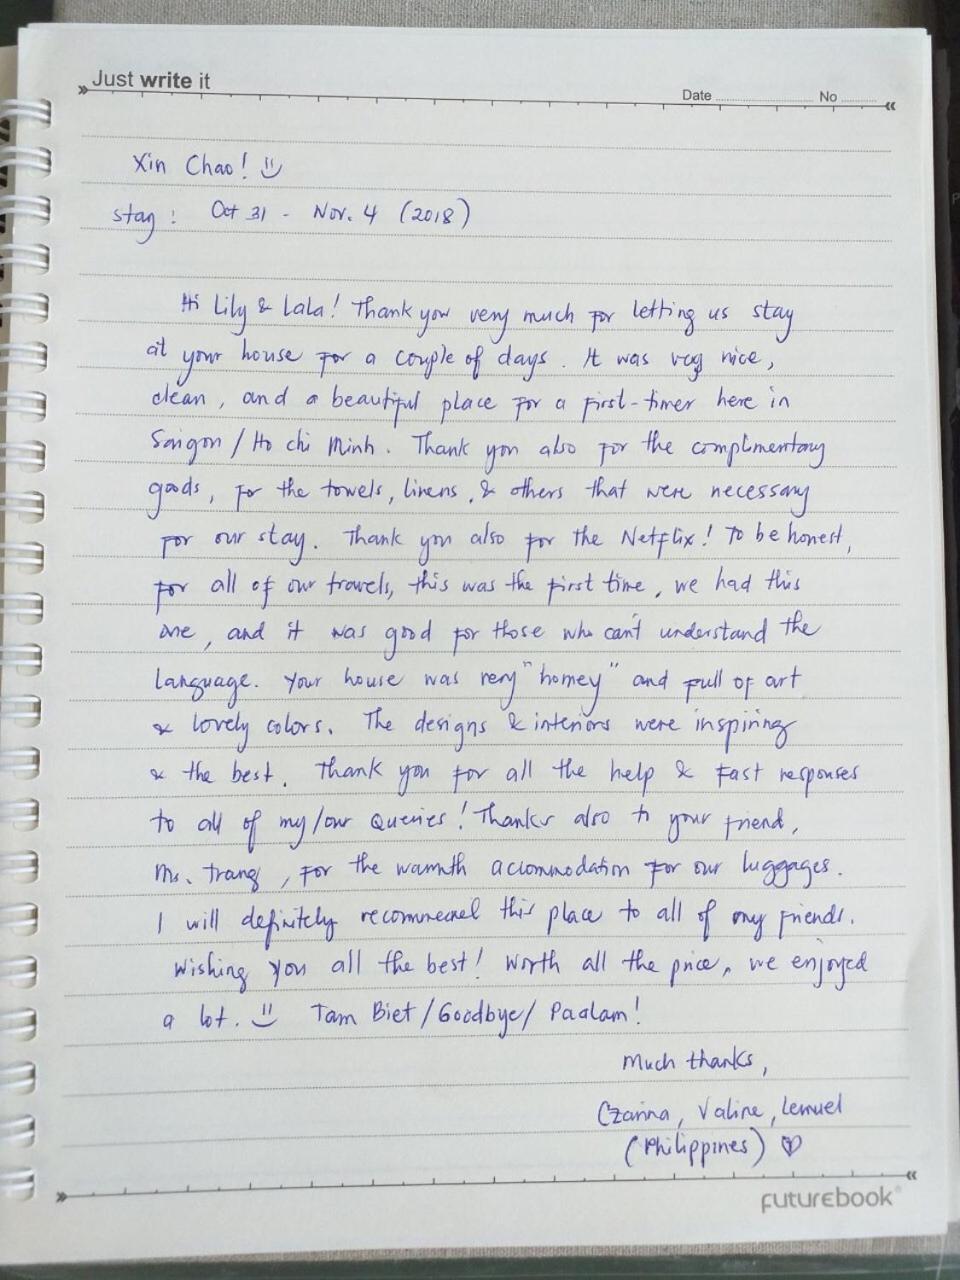 Just write it
Date No
Xin Chao! :)
Stay : Oct 31 - Nov. 4 (2018)
Hi Lily & Lala! Thank you very much for letting us stay
at your house for a couple of days. It was very nice,
clean, and a beautiful place for a first-timer here in
Saigon / Ho chi Minh. Thank you also for the complimentary
goods, for the towels, linens, & others that were necessary
for our stay. Thank you also for the Netflix! To be honest,
for all of our travels, this was the first time, we had this
one, and it was good for those who can't understand the
language. Your house was very "homey" and full of art
& lovely colors. The designs & interiors were inspiring
& the best. Thank you for all the help & fast responses
to all of my/our queries! Thanks also to your friend,
Ms. Trang, for the warmth accommodation for our luggages.
I will definitely recommend this place to all of my friends.
Wishing you all the best! Worth all the price, we enjoyed
a lot. :) Tam Biet / Goodbye / Paalam!
Much thanks,
Czarina, Valine, Lemuel
(Philippines) ♡
futurebook